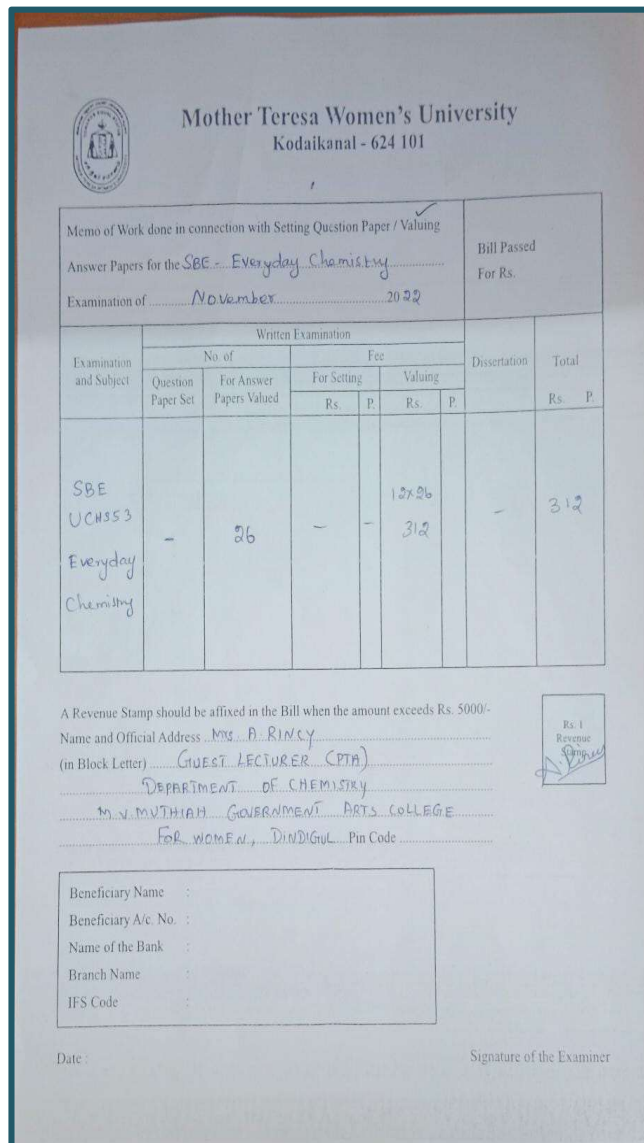 Mother Teresa Women's University
Kodaikanal - 624 101
Memo of Work done in connection with Setting Question Paper / Valuing
Answer Papers for the SBE - Everyday Chemistry
Examination of November 2022
Bill Passed
For Rs.
Examination
and Subject
Written Examination
No. of
Fee
Question
Paper Set
For Answer
Papers Valued
For Setting
Valuing
Rs. P. Rs. P.
Dissertation
Total
Rs. P.
SBE
UCHS53
Everyday
Chemistry
-
26
- -
12x26
312
-
312
A Revenue Stamp should be affixed in the Bill when the amount exceeds Rs. 5000/-
Name and Official Address Mrs A. RINCY
(in Block Letter) GUEST LECTURER (PTA)
DEPARTMENT OF CHEMISTRY
M.V. MUTHIAH GOVERNMENT ARTS COLLEGE
FOR WOMEN, DINDIGUL Pin Code
Rs. 1
Revenue
Stamp
Beneficiary Name :
Beneficiary A/c. No. :
Name of the Bank :
Branch Name :
IFS Code :
Date :
Signature of the Examiner